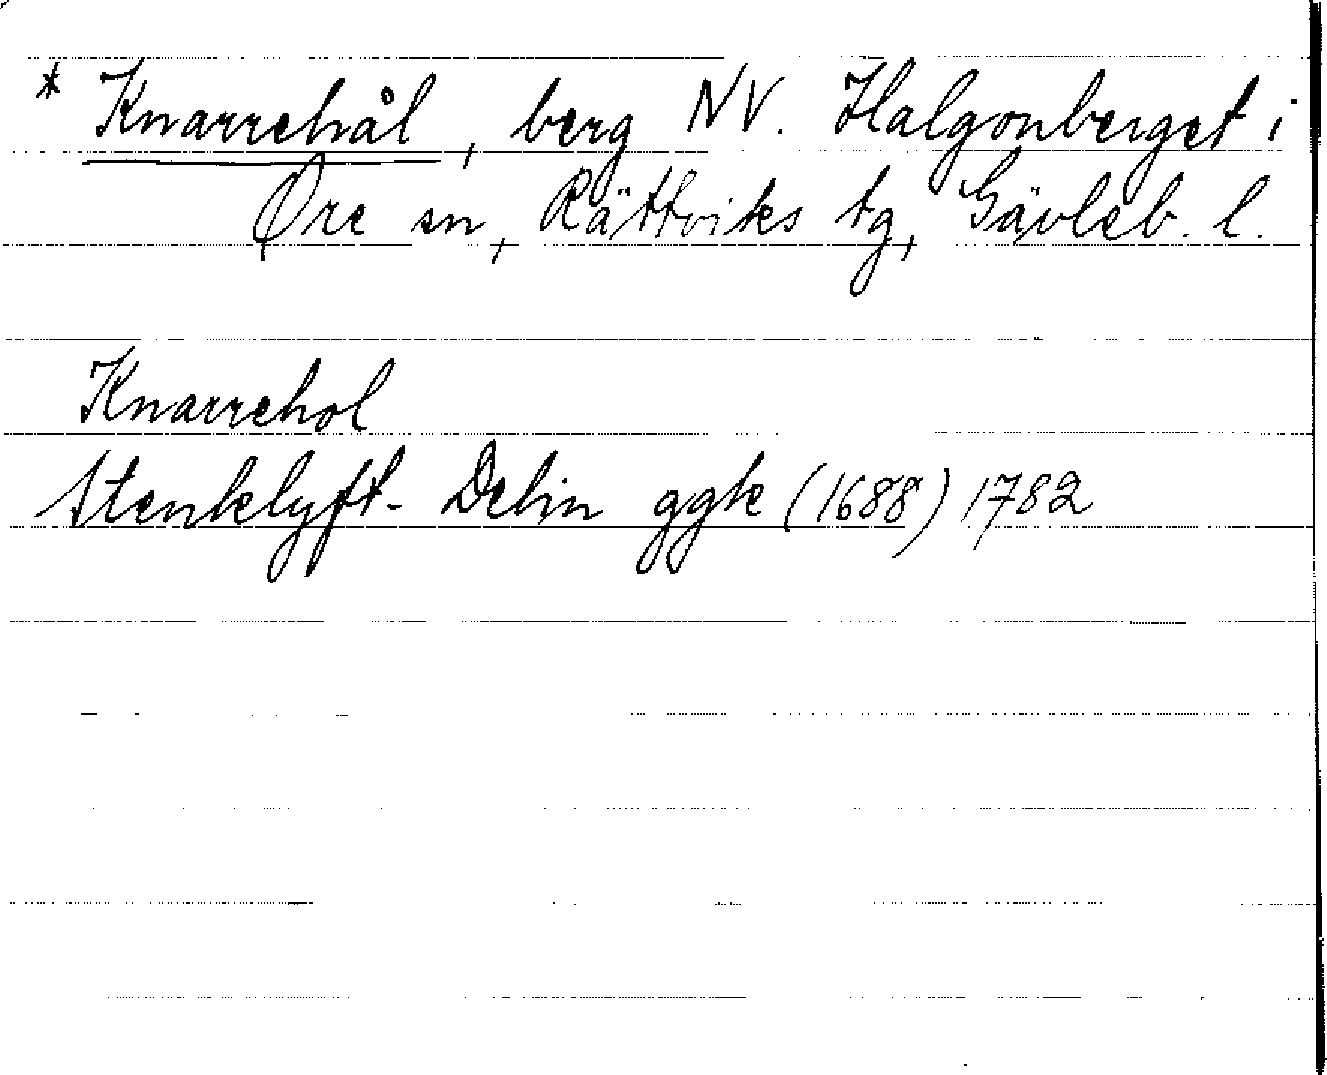 * Knarrehål, berg NV. Halgonberget i
Ore sn, Rättviks tg, Gävleb. l.
Knarrehol
Stenklyft- Delin ggk (1688) 1782